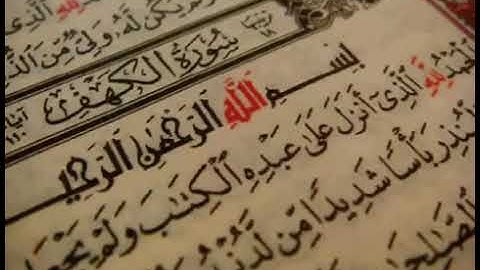 للَّهِ الَّذِى
يَكُن لَّهُۥ وَلِىٌّ مِّنَ الذُّ
سُورَةُ الكَهْفِ
بِسْمِ اللَّهِ الرَّحْمَٰنِ الرَّحِيمِ
الْحَمْدُ لِلَّهِ الَّذِىٓ أَنزَلَ عَلَىٰ عَبْدِهِ الْكِتَٰبَ وَلَمْ يَجْعَل
لِّيُنذِرَ بَأْسًا شَدِيدًا مِّن لَّدُنْهُ
الصَّٰلِحَٰ